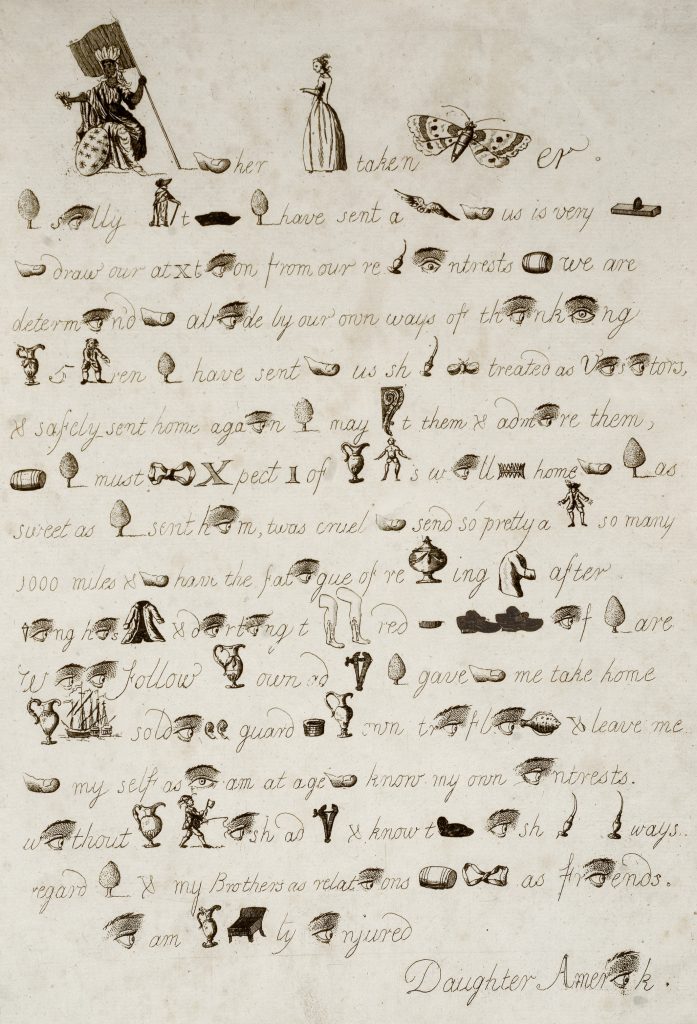 her taken er.
s lly t have sent a us is very
draw our at x t on from our re ntrests we are
determ nd ab de by our own ways of th nk ng
5 ren have sent us sh treated as V s tors,
& safely sent home aga n may t them & adm re them,
must X pect I of s w ll home as
sweet as sent h m, twas cruel send so pretty a so many
1000 miles & have the fat gue of re ing after
ng h s & d rt ng t red f are
W follow own ad gave me take home
sold guard own tr fl & leave me
my self as am at age know my own ntrests.
w thout sh ad & know t sh ways
regard & my Brothers as relat ons as fr ends.
am ty njured
Daughter Amer k.